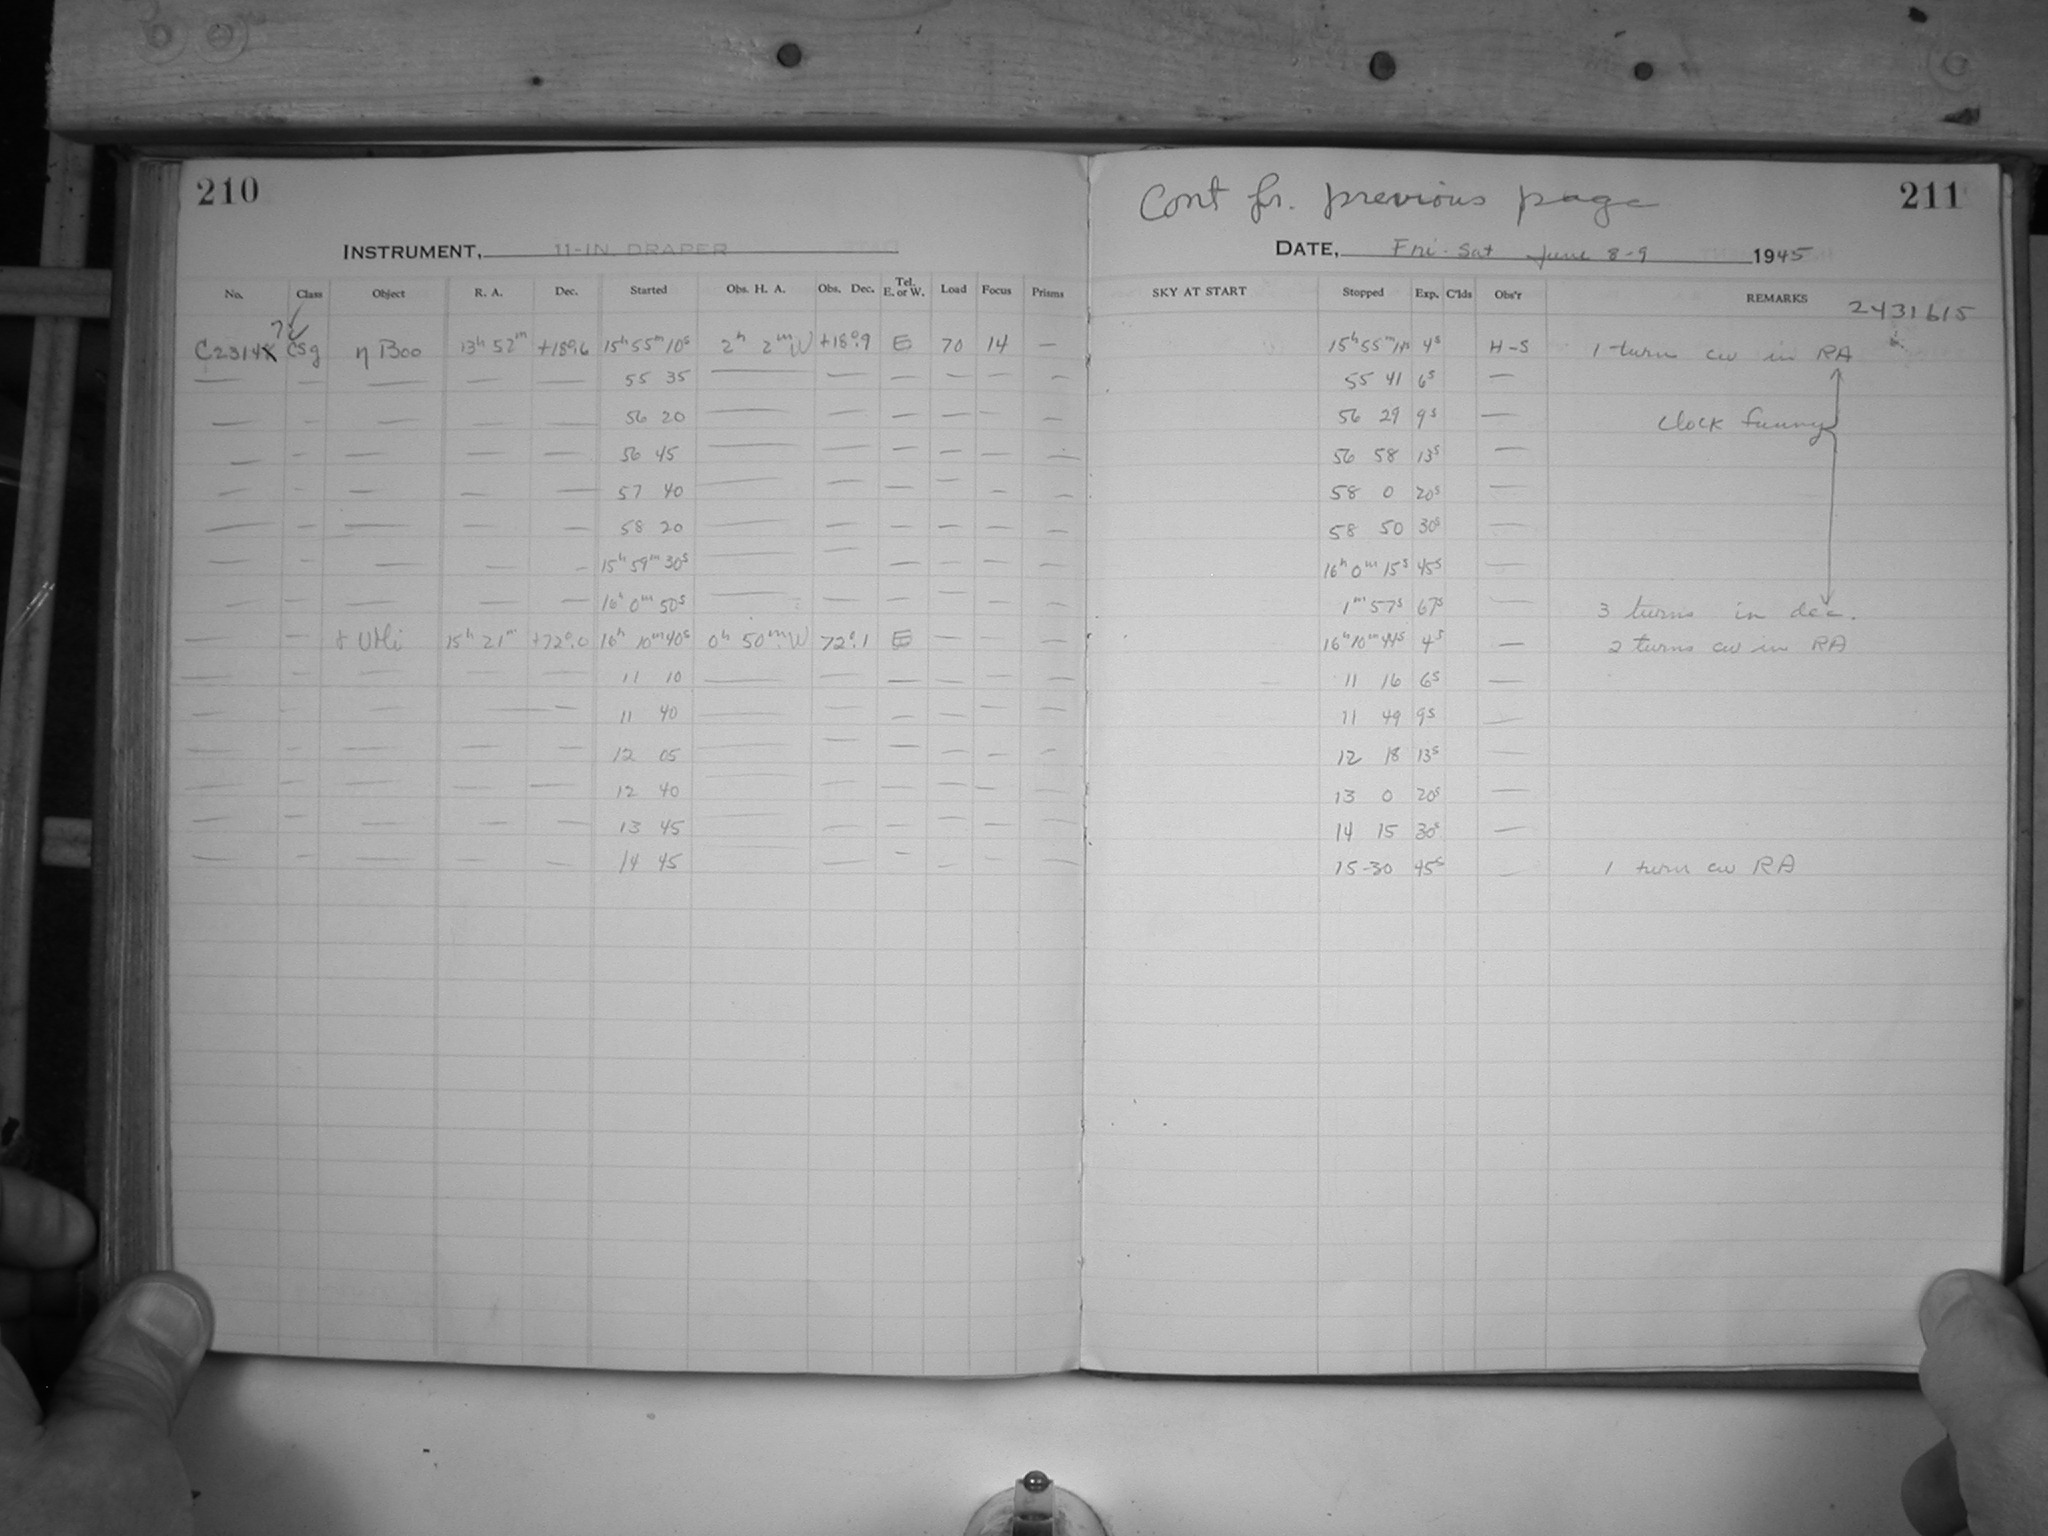 210
INSTRUMENT, 11-IN DRAPER
No. Class Object R. A. Dec. Started Obs. H. A. Obs. Dec. Tel. E. or W. Load Focus Prisms
7
C2314 CSg η Boo 13h 52m +18°.6 15h 55m 10s 2h 2m W +18°.9 E 70 14 —
— — — — — 55 35 — — — — — —
— — — — — 56 20 — — — — — —
— — — — — 56 45 — — — — — —
— — — — — 57 40 — — — — — —
— — — — — 58 20 — — — — — —
— — — — — 15h 59m 30s — — — — — —
— — — — — 16h 0m 50s — — — — — —
— — UMi 15h 21m +72°.0 16h 10m 40s 0h 50m W 72°.1 E — — —
— — — — — 11 10 — — — — — —
— — — — — 11 40 — — — — — —
— — — — — 12 05 — — — — — —
— — — — — 12 40 — — — — — —
— — — — — 13 45 — — — — — —
— — — — — 14 45 — — — — —
Cont fr. previous page
211
DATE, Fri-Sat June 8-9 1945
SKY AT START Stopped Exp. C'lds Obs'r REMARKS
2431615
15h 55m 14s 4s H-S 1 turn cw in RA
55 41 6s —
56 29 9s — Clock funny
56 58 13s —
58 0 20s —
58 50 30s —
16h 0m 15s 45s —
1m 57s 67s — 3 turns in dec.
16h 10m 44s 4s — 2 turns cw in RA
11 16 6s —
11 49 9s —
12 18 13s —
13 0 20s —
14 15 30s —
15-30 45s — 1 turn cw RA